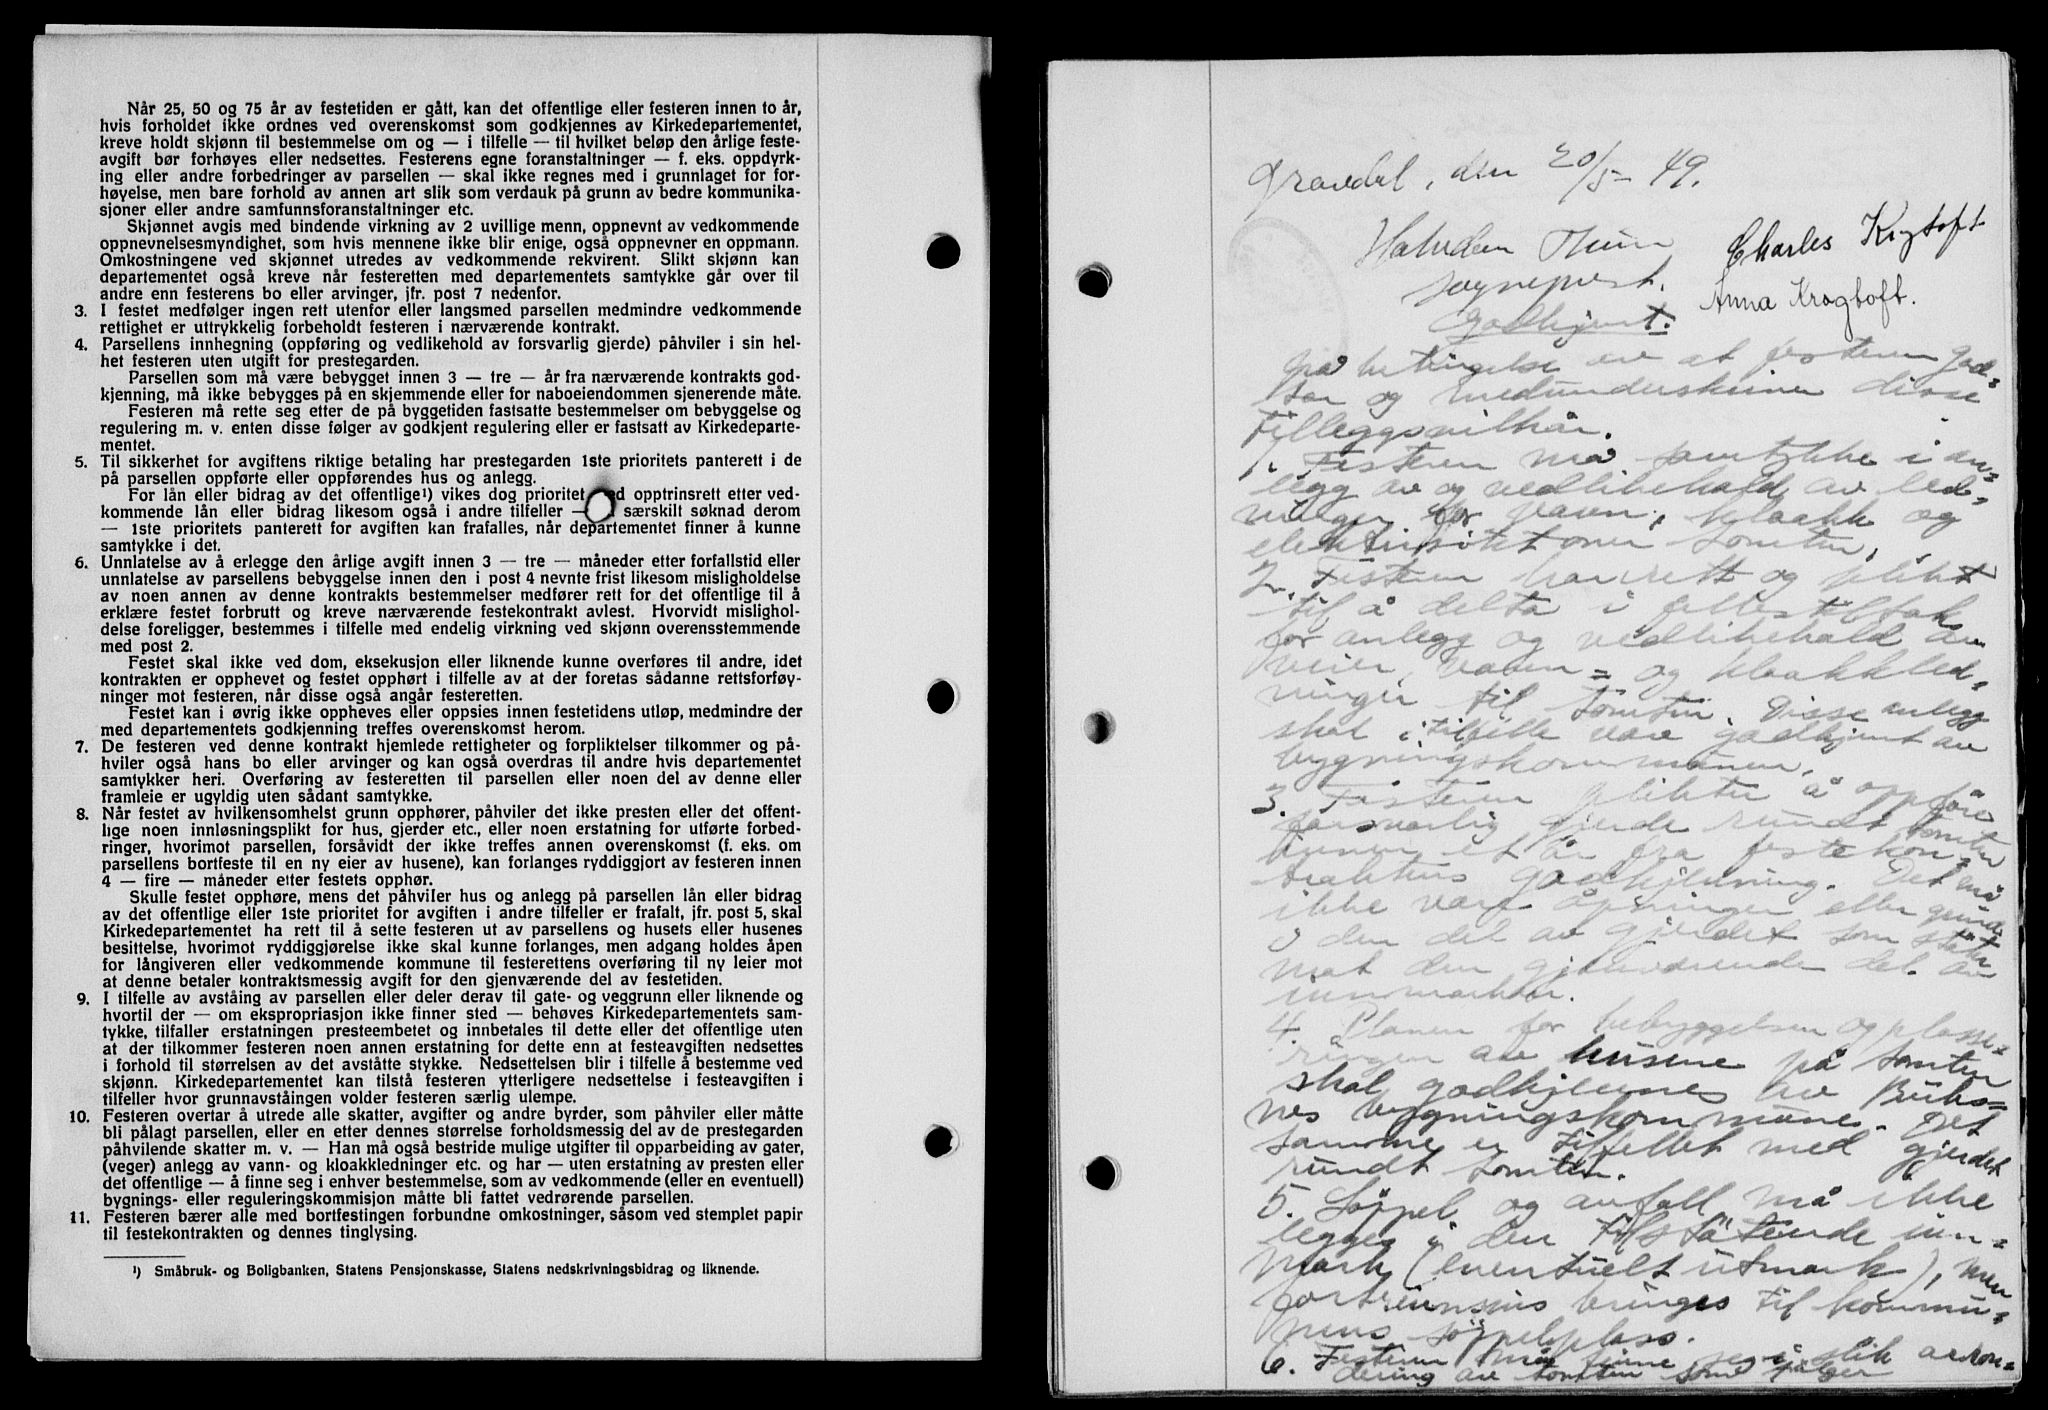 Når 25, 50 og 75 år av festetiden er gått, kan det offentlige eller festeren innen to år,
hvis forholdet ikke ordnes ved overenskomst som godkjennes av Kirkedepartementet,
kreve holdt skjønn til bestemmelse om og — i tilfelle — til hvilket beløp den årlige feste-
avgift bør forhøyes eller nedsettes. Festerens egne foranstaltninger — f. eks. oppdyrk-
ing eller andre forbedringer av parsellen — skal ikke regnes med i grunnlaget for for-
høyelse, men bare forhold av annen art slik som verdauk på grunn av bedre kommunika-
sjoner eller andre samfunnsforanstaltninger etc.
Skjønnet avgis med bindende virkning av 2 uvillige menn, oppnevnt av vedkommende
oppnevnelsesmyndighet, som hvis mennene ikke blir enige, også oppnevner en oppmann.
Omkostningene ved skjønnet utredes av vedkommende rekvirent. Slikt skjønn kan
departementet også kreve når festeretten med departementets samtykke går over til
andre enn festerens bo eller arvinger, jfr. post 7 nedenfor.
3. I festet medfølger ingen rett utenfor eller langsmed parsellen medmindre vedkommende
rettighet er uttrykkelig forbeholdt festeren i nærværende kontrakt.
4. Parsellens innhegning (oppføring og vedlikehold av forsvarlig gjerde) påhviler i sin hel-
het festeren uten utgift for prestegarden.
Parsellen som må være bebygget innen 3 — tre — år fra nærværende kontrakts god-
kjenning, må ikke bebygges på en skjemmende eller for naboeiendommen sjenerende måte.
Festeren må rette seg etter de på byggetiden fastsatte bestemmelser om bebyggelse og
regulering m. v. enten disse følger av godkjent regulering eller er fastsatt av Kirkedeparte-
mentet.
5. Til sikkerhet for avgiftens riktige betaling har prestegarden 1ste prioritets panterett i de
på parsellen oppførte eller oppførendes hus og anlegg.
For lån eller bidrag av det offentlige¹) vikes dog prioritet opptrinsrett etter ved-
kommende lån eller bidrag likesom også i andre tilfeller — særskilt søknad derom
— 1ste prioritets panterett for avgiften kan frafalles, når departementet finner å kunne
samtykke i det.
6. Unnlatelse av å erlegge den årlige avgift innen 3 — tre — måneder etter forfallstid eller
unnlatelse av parsellens bebyggelse innen den i post 4 nevnte frist likesom misligholdelse
av noen annen av denne kontrakts bestemmelser medfører rett for det offentlige til å
erklære festet forbrutt og kreve nærværende festekontrakt avlest. Hvorvidt mislighol-
delse foreligger, bestemmes i tilfelle med endelig virkning ved skjønn overensstemmende
med post 2.
Festet skal ikke ved dom, eksekusjon eller liknende kunne overføres til andre, idet
kontrakten er opphevet og festet opphørt i tilfelle av at der foretas sådanne rettsforføy-
ninger mot festeren, når disse også angår festeretten.
Festet kan i øvrig ikke oppheves eller oppsies innen festetidens utløp, medmindre der
med departementets godkjenning treffes overenskomst herom.
7. De festeren ved denne kontrakt hjemlede rettigheter og forpliktelser tilkommer og på-
hviler også hans bo eller arvinger og kan også overdras til andre hvis departementet
samtykker heri. Overføring av festeretten til parsellen eller noen del av denne eller
framleie er ugyldig uten sådant samtykke.
8. Når festet av hvilkensomhelst grunn opphører, påhviler det ikke presten eller det offent-
lige noen innløsningsplikt for hus, gjerder etc., eller noen erstatning for utførte forbed-
ringer, hvorimot parsellen, forsåvidt der ikke treffes annen overenskomst (f. eks. om
parsellens bortfeste til en ny eier av husene), kan forlanges ryddiggjort av festeren innen
4 — fire — måneder etter festets opphør.
Skulle festet opphøre, mens det påhviler hus og anlegg på parsellen lån eller bidrag
av det offentlige eller 1ste prioritet for avgiften i andre tilfeller er frafalt, jfr. post 5, skal
Kirkedepartementet ha rett til å sette festeren ut av parsellens og husets eller husenes
besittelse, hvorimot ryddiggjørelse ikke skal kunne forlanges, men adgang holdes åpen
for långiveren eller vedkommende kommune til festerettens overføring til ny leier mot
at denne betaler kontraktsmessig avgift for den gjenværende del av festetiden.
9. I tilfelle av avståing av parsellen eller deler derav til gate- og veggrunn eller liknende og
hvortil der — om ekspropriasjon ikke finner sted — behøves Kirkedepartementets sam-
tykke, tilfaller erstatningen presteembetet og innbetales til dette eller det offentlige uten
at der tilkommer festeren noen annen erstatning for dette enn at festeavgiften nedsettes
i forhold til størrelsen av det avståtte stykke. Nedsettelsen blir i tilfelle å bestemme ved
skjønn. Kirkedepartementet kan tilstå festeren ytterligere nedsettelse i festeavgiften i
tilfeller hvor grunnavståingen volder festeren særlig ulempe.
10. Festeren overtar å utrede alle skatter, avgifter og andre byrder, som påhviler eller måtte
bli pålagt parsellen, eller en etter dennes størrelse forholdsmessig del av de prestegarden
påhvilende skatter m. v. — Han må også bestride mulige utgifter til opparbeiding av gater,
(veger) anlegg av vann- og kloakkledninger etc. og har — uten erstatning av presten eller
det offentlige — å finne seg i enhver bestemmelse, som av vedkommende (eller en eventuell)
bygnings- eller reguleringskommisjon måtte bli fattet vedrørende parsellen.
11. Festeren bærer alle med bortfestingen forbundne omkostninger, såsom ved stemplet papir
til festekontrakten og dennes tinglysing.
¹) Småbruk- og Boligbanken, Statens Pensjonskasse, Statens nedskrivningsbidrag og liknende.
Gravdal, den 20/5-49.
Halvdan Thun Charles Krogtoft
sogneprest. Anna Krogtoft.
Godkjent.
på betingelse av at festeren god-
tar og medunderskriver disse
tilleggsvilkår.
1. Festeren må samtykke i an-
legg av og vedlikehold av led-
ninger for vann, kloakk og
elektrisitet over tomten.
2. Festeren har rett og plikt
til å delta i fellestiltak
for anlegg og vedlikehold av
veier, vann- og kloakkled-
ninger til tomten. Disse anlegg
skal i tilfelle være godkjent av
bygningskommunen.
3. Festeren plikter å oppføre
forsvarlig gjerde rundt tomten
innen et år fra festekon-
traktens godkjenning. Det må
ikke være åpninger eller grinder
i den del av gjerdet som støter
mot den gjenværende del av
innmarken.
4. Planen for bebyggelsen og plasse-
ringen av husene på tomten
skal godkjennes av Buks-
nes bygningskommune. Det
samme er tilfellet med gjerdet
rundt tomten.
5. Søppel og avfall må ikke
legges i den tilstøtende inn-
mark (eventuelt utmark), men
fortrinnsvis bringes til kommu-
nens søppelplass.
6. Festeren må finne seg i slik arron-
dering av tomten som følger